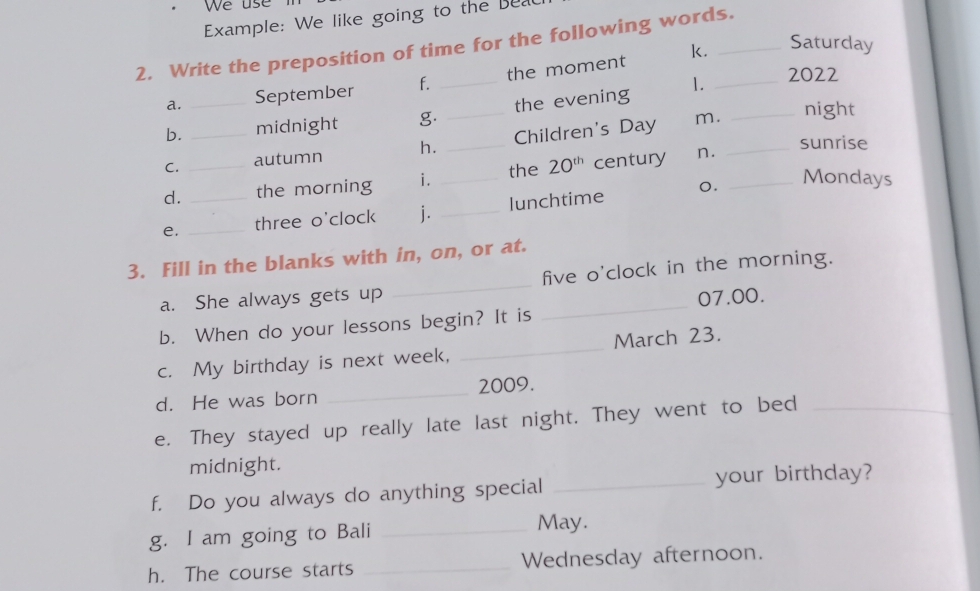 We use
Example: We like going to the
2. Write the preposition of time for the following words.
a. ______ September
b. ______ midnight
c. ______ autumn
d. ______ the morning
e. ______ three o'clock
f. ______ the moment
g. ______ the evening
h. ______ Children's Day
i. ______ the 20th century
j. ______ lunchtime
k. ______ Saturday
l. ______ 2022
m. ______ night
n. ______ sunrise
o. ______ Mondays
3. Fill in the blanks with in, on, or at.
a. She always gets up ______ five o'clock in the morning.
b. When do your lessons begin? It is ______ 07.00.
c. My birthday is next week, ______ March 23.
d. He was born ______ 2009.
e. They stayed up really late last night. They went to bed ______
midnight.
f. Do you always do anything special ______ your birthday?
g. I am going to Bali ______ May.
h. The course starts ______ Wednesday afternoon.